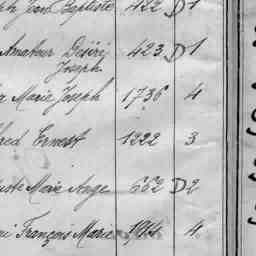 Jean Baptiste 422 D 1
Amateur Désiré 423 D 1
Joseph
Marie Joseph 1736 4
Ernest 1222 3
Marie Ange 662 D 2
François Marie 1914 4